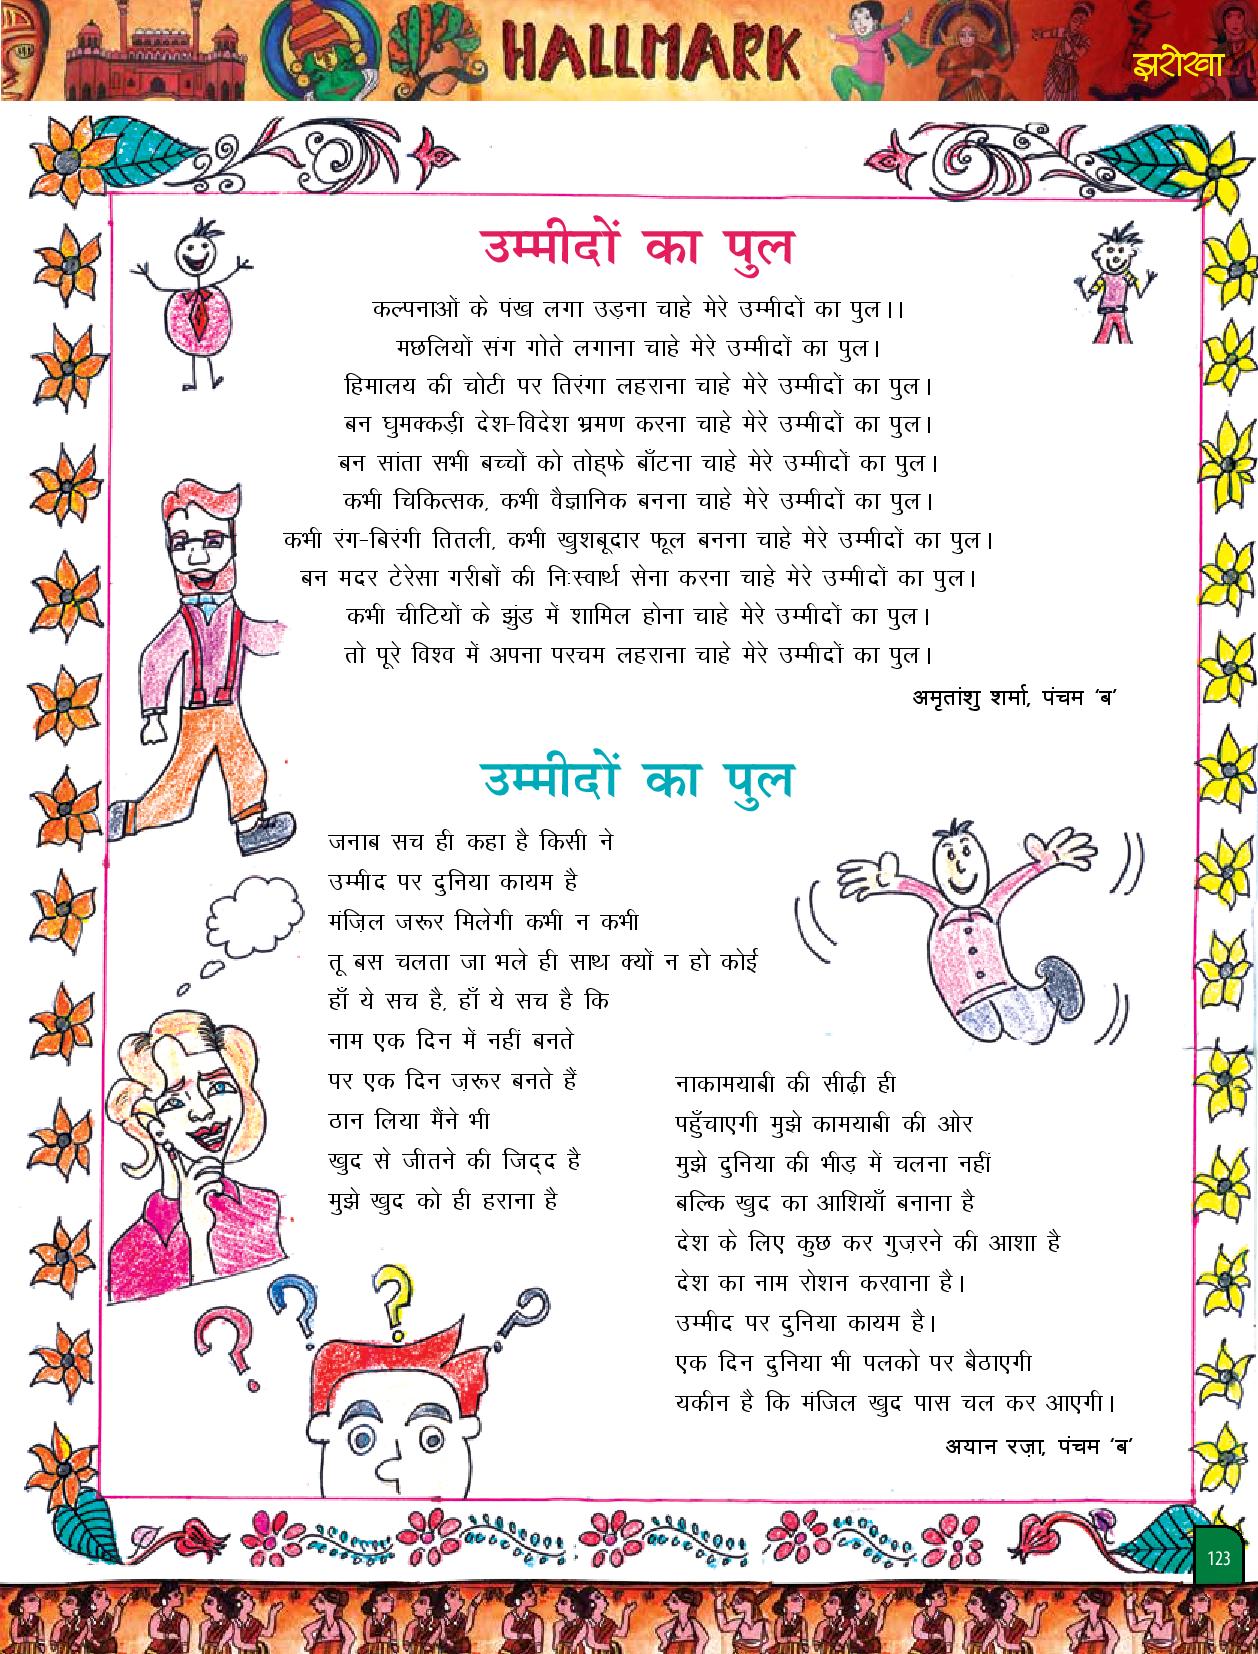 HALLMARK
झरोखा
उम्मीदों का पुल
कल्पनाओं के पंख लगा उड़ना चाहे मेरे उम्मीदों का पुल।।
मछलियों संग गोते लगाना चाहे मेरे उम्मीदों का पुल।
हिमालय की चोटी पर तिरंगा लहराना चाहे मेरे उम्मीदों का पुल।
बन घुमक्कड़ी देश-विदेश भ्रमण करना चाहे मेरे उम्मीदों का पुल।
बन सांता सभी बच्चों को तोह्फे बाँटना चाहे मेरे उम्मीदों का पुल।
कभी चिकित्सक, कभी वैज्ञानिक बनना चाहे मेरे उम्मीदों का पुल।
कभी रंग-बिरंगी तितली, कभी खुशबूदार फूल बनना चाहे मेरे उम्मीदों का पुल।
बन मदर टेरेसा गरीबों की निःस्वार्थ सेना करना चाहे मेरे उम्मीदों का पुल।
कभी चीटियों के झुंड में शामिल होना चाहे मेरे उम्मीदों का पुल।
तो पूरे विश्व में अपना परचम लहराना चाहे मेरे उम्मीदों का पुल।
अमृतांशु शर्मा, पंचम ‘ब’
उम्मीदों का पुल
जनाब सच ही कहा है किसी ने
उम्मीद पर दुनिया कायम है
मंज़िल जरूर मिलेगी कभी न कभी
तू बस चलता जा भले ही साथ क्यों न हो कोई
हाँ ये सच है, हाँ ये सच है कि
नाम एक दिन में नहीं बनते
पर एक दिन ज़रूर बनते हैं
ठान लिया मैंने भी
खुद से जीतने की जिद्द है
मुझे खुद को ही हराना है
नाकामयाबी की सीढ़ी ही
पहुँचाएगी मुझे कामयाबी की ओर
मुझे दुनिया की भीड़ में चलना नहीं
बल्कि खुद का आशियाँ बनाना है
देश के लिए कुछ कर गुज़रने की आशा है
देश का नाम रोशन करवाना है।
उम्मीद पर दुनिया कायम है।
एक दिन दुनिया भी पलको पर बैठाएगी
यकीन है कि मंजिल खुद पास चल कर आएगी।
अयान रज़ा, पंचम ‘ब’
123